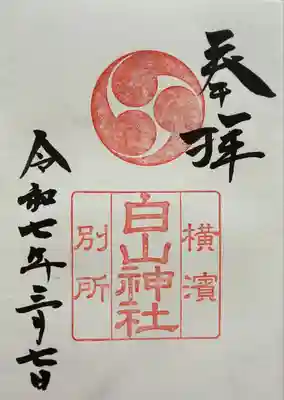 奉拝
横濱
白山神社
別所
令和七年三月七日